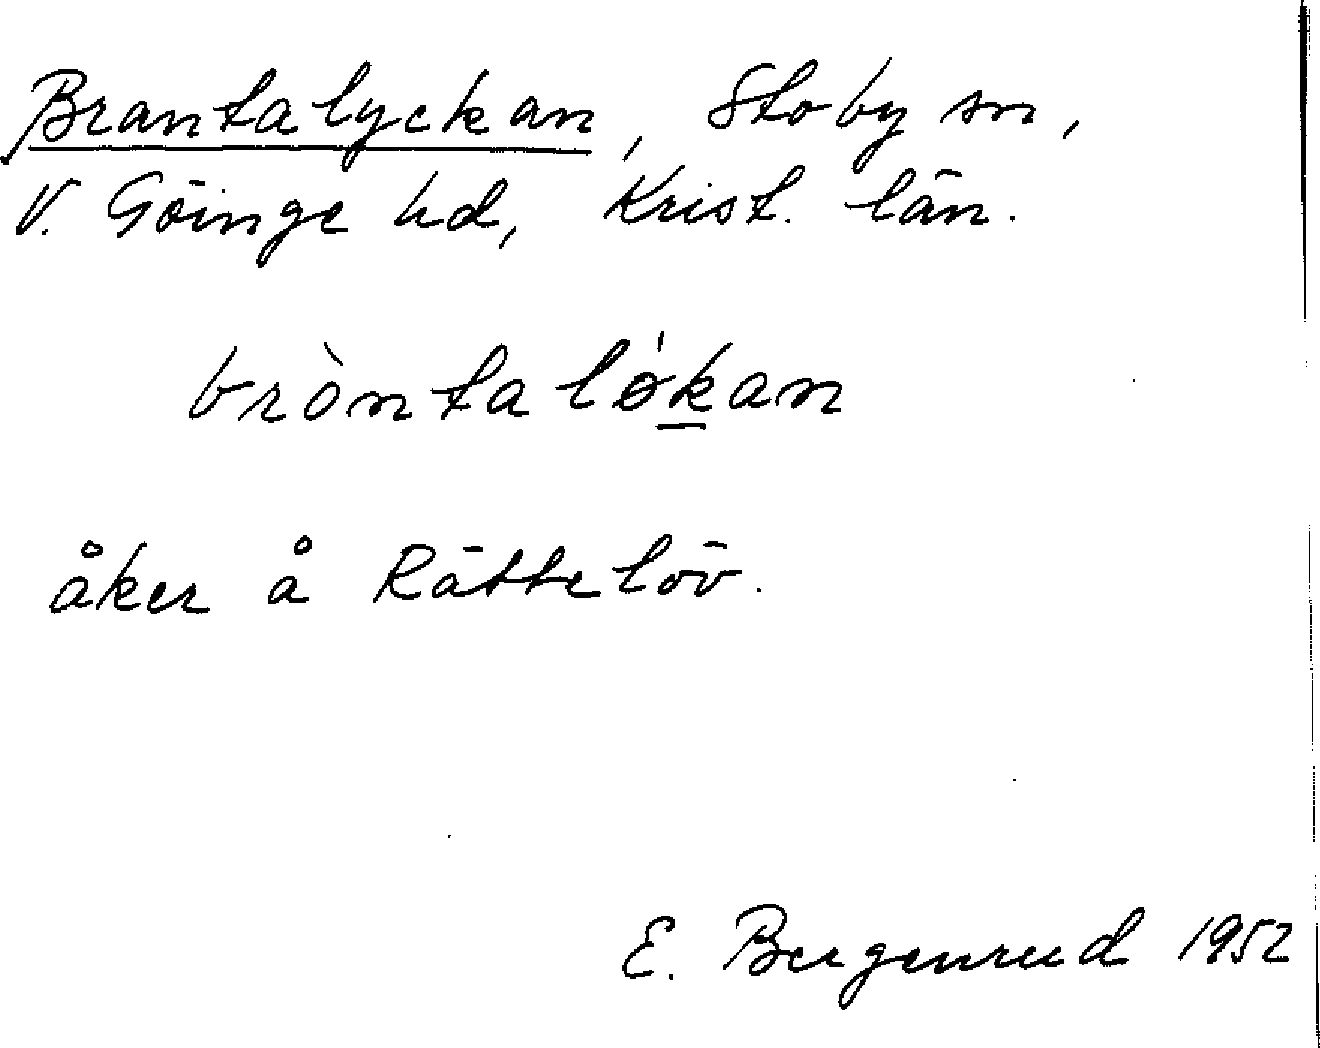 Brantalyckan, Stoby sn,
V. Göinge hd, Krist. län.
bròntaló̱kan
åker å Rättelöv.
E. Bergenrud 1952